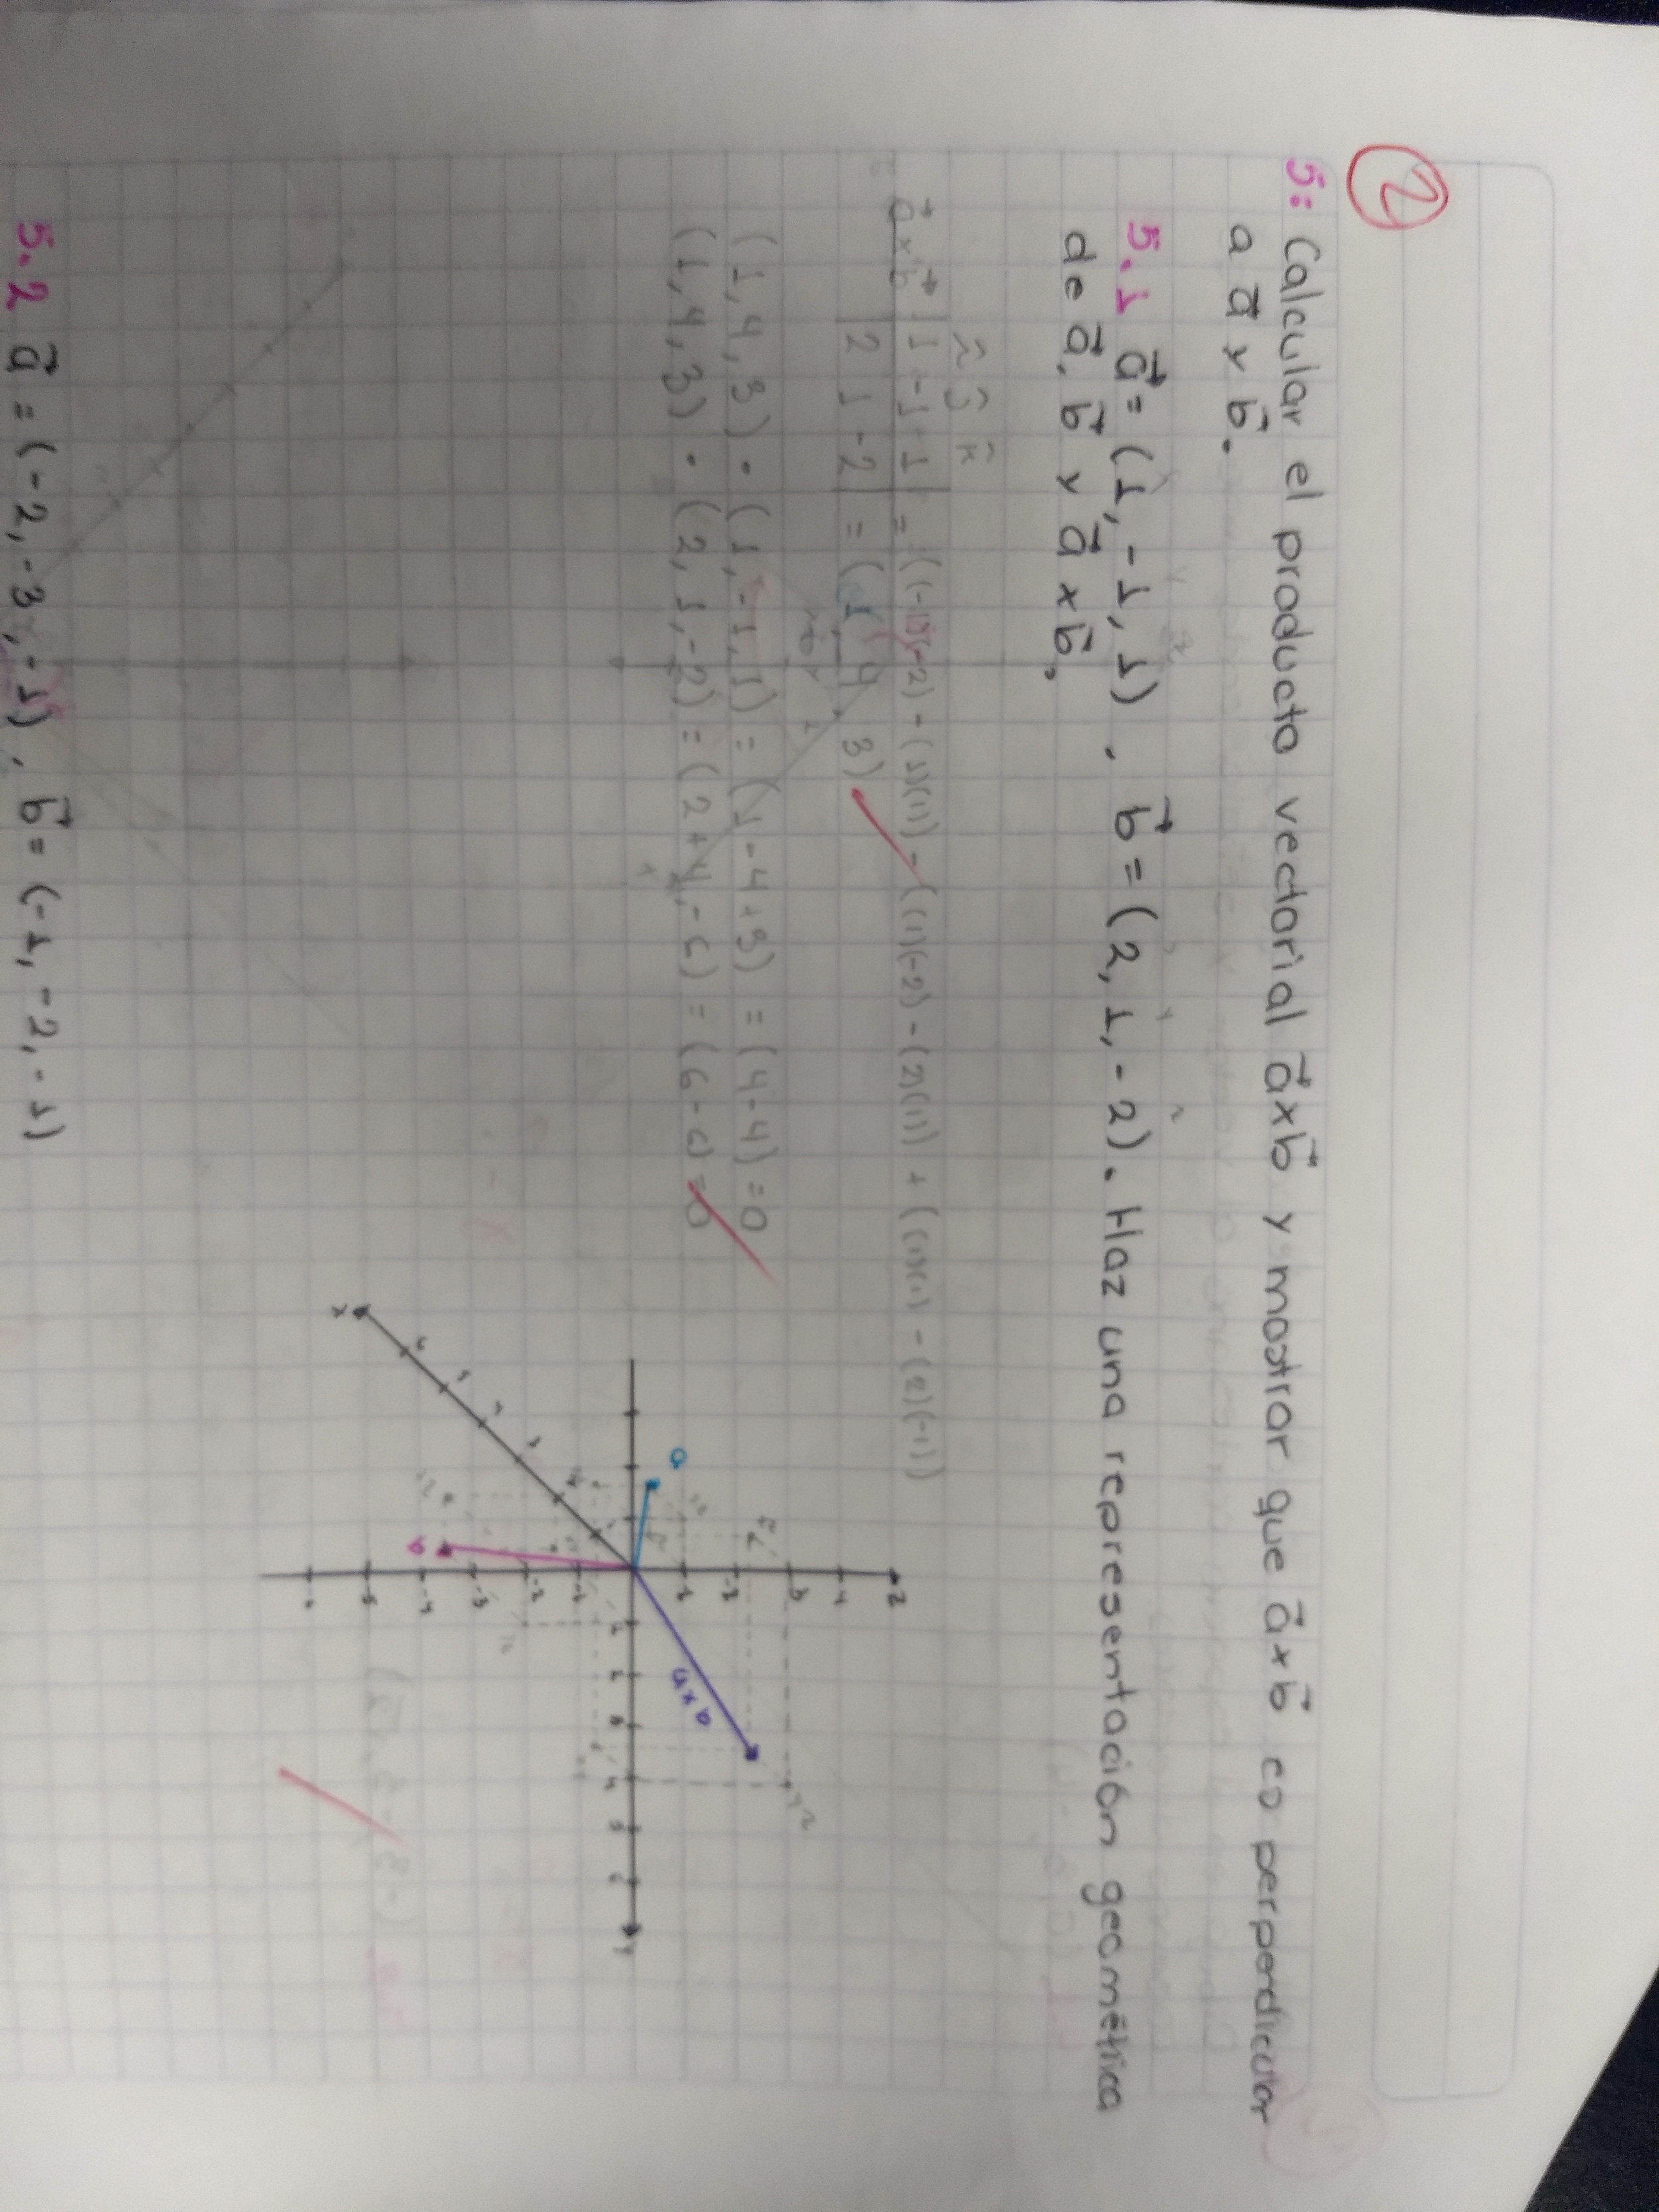 2
5: Calcular el producto vectorial a⃗×b⃗ y mostrar que a⃗×b⃗ es perpendicular
a a⃗ y b⃗.
5.1 a⃗ = (1, -1, 1), b⃗ = (2, 1, -2). Haz una representación geométrica
de a⃗, b⃗ y a⃗ × b⃗.
î ĵ k̂
a⃗×b⃗ | 1 -1 1 | = ((-1)(-2) - (1)(1)) - ((1)(-2) - (2)(1)) + ((1)(1) - (2)(-1))
| 2 1 -2 | = (1, 4, 3)
(1, 4, 3) · (1, -1, 1) = (1 - 4 + 3) = (4-4) = 0
(1, 4, 3) · (2, 1, -2) = (2 + 4 - 6) = (6-6) = 0
z
4
3
2
1
a
a×b
1 2 3 4 5 6 y
-1
-2
-3
-4
-5
b
3
4
5
6
x
5.2 a⃗ = (-2, -3, -1), b⃗ = (-1, -2, -1)